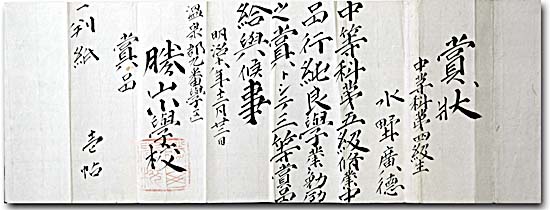 賞狀
中等科第四級生
水野廣德
中等科第五級修業中
品行純良學業勉励
之賞トシテ三等賞品
給與候事
明治十八年十二月廿二日
温泉郡九番學区
勝山學校
賞品
一判紙 壱帖